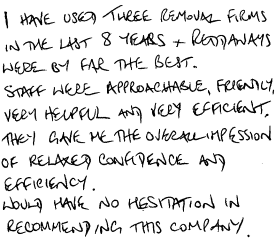 I HAVE USED THREE REMOVAL FIRMS
IN THE LAST 8 YEARS + REDDAWAYS
WERE BY FAR THE BEST.
STAFF WERE APPROACHABLE, FRIENDLY,
VERY HELPFUL AND VERY EFFICIENT.
THEY GAVE ME THE OVERALL IMPESSION
OF RELAXED CONFIDENCE AND
EFFICIENCY.
WOULD HAVE NO HESITATION IN
RECOMMENDING THIS COMPANY.